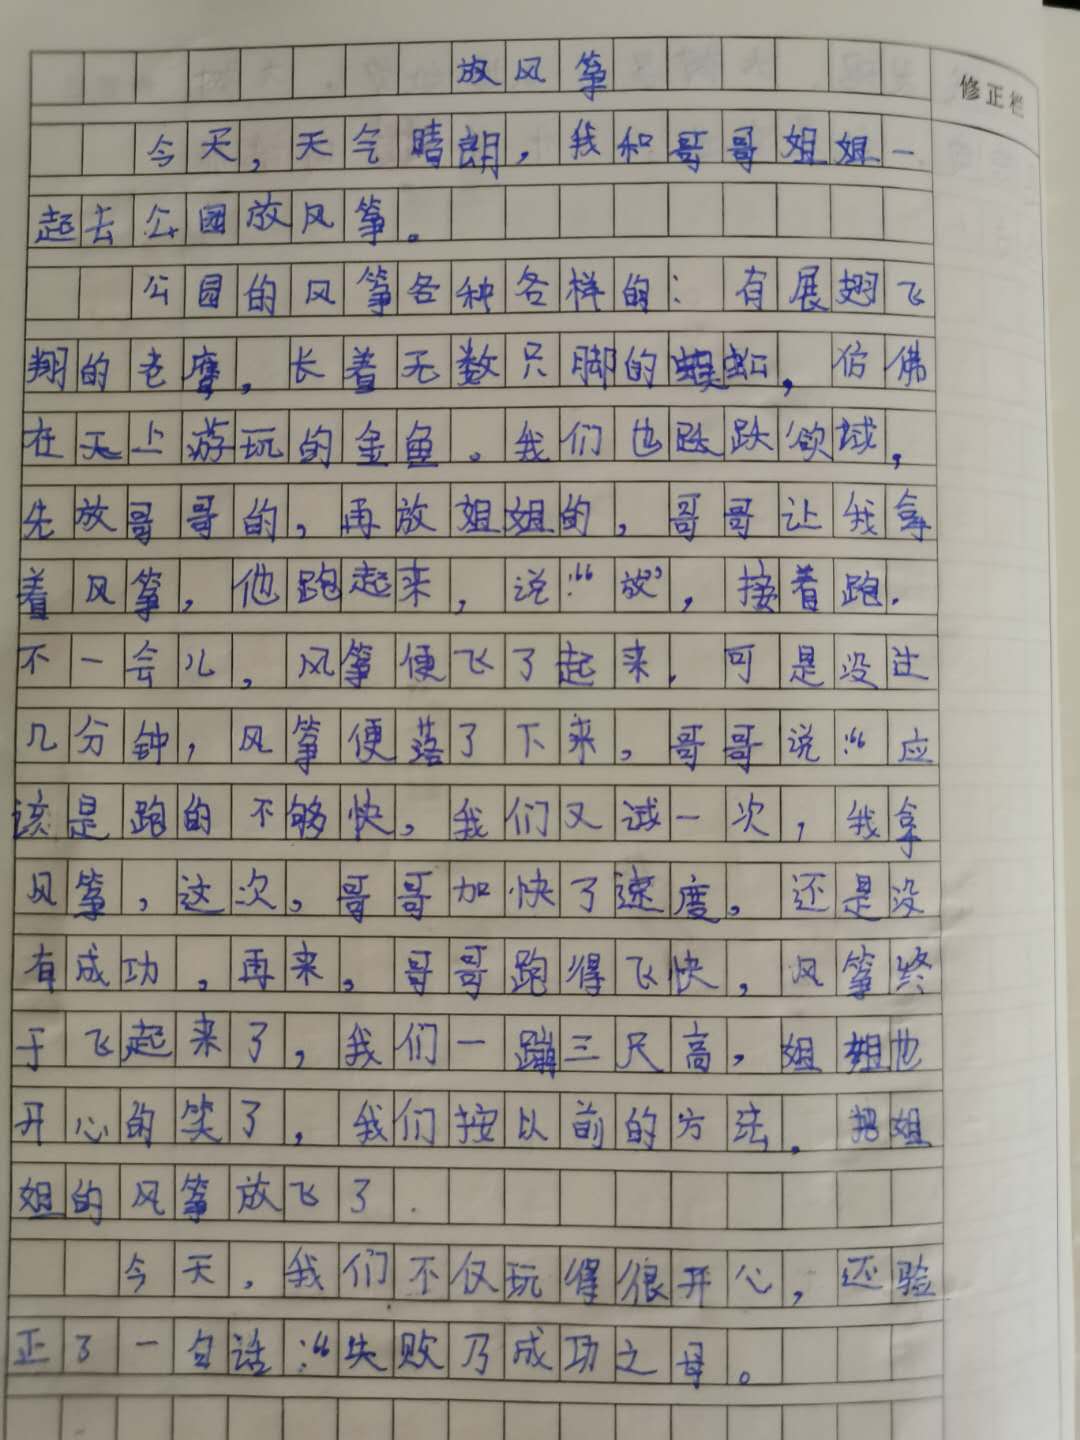 放风筝
修正栏
今天，天气晴朗，我和哥哥姐姐一
起去公园放风筝。
公园的风筝各种各样的：有展翅飞
翔的老鹰，长着无数只脚的蜈蚣，仿佛
在天上游玩的金鱼。我们也跃跃欲试，
先放哥哥的，再放姐姐的，哥哥让我拿
着风筝，他跑起来，说：“放”，接着跑．
不一会儿，风筝便飞了起来．可是没过
几分钟，风筝便落了下来，哥哥说：“应
该是跑的不够快，我们又试一次，我拿
风筝，这次，哥哥加快了速度，还是没
有成功，再来，哥哥跑得飞快，风筝终
于飞起来了，我们一蹦三尺高，姐姐也
开心的笑了，我们按以前的方法，把姐
姐的风筝放飞了．
今天，我们不仅玩得很开心，还验
正了一句话：“失败乃成功之母。